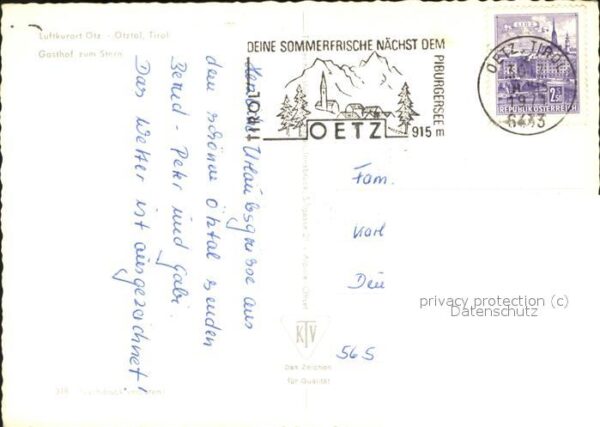 Luftkurort Otz - Otztal, Tirol
Gasthof zum Stern
DEINE SOMMERFRISCHE NÄCHST DEM
PIBURGERSEE
915 m
OETZ
TIROL
OETZ, TIROL
6433
LINZ
2.50
REPUBLIK ÖSTERREICH
Urlaubsgrüsse aus
dem schönen Ötztal senden
Bernd - Peter und Gabi.
Das Wetter ist ausgezeichnet!
Fam.
Karl
privacy protection (c)
Datenschutz
KTV
Das Zeichen
für Qualität
565